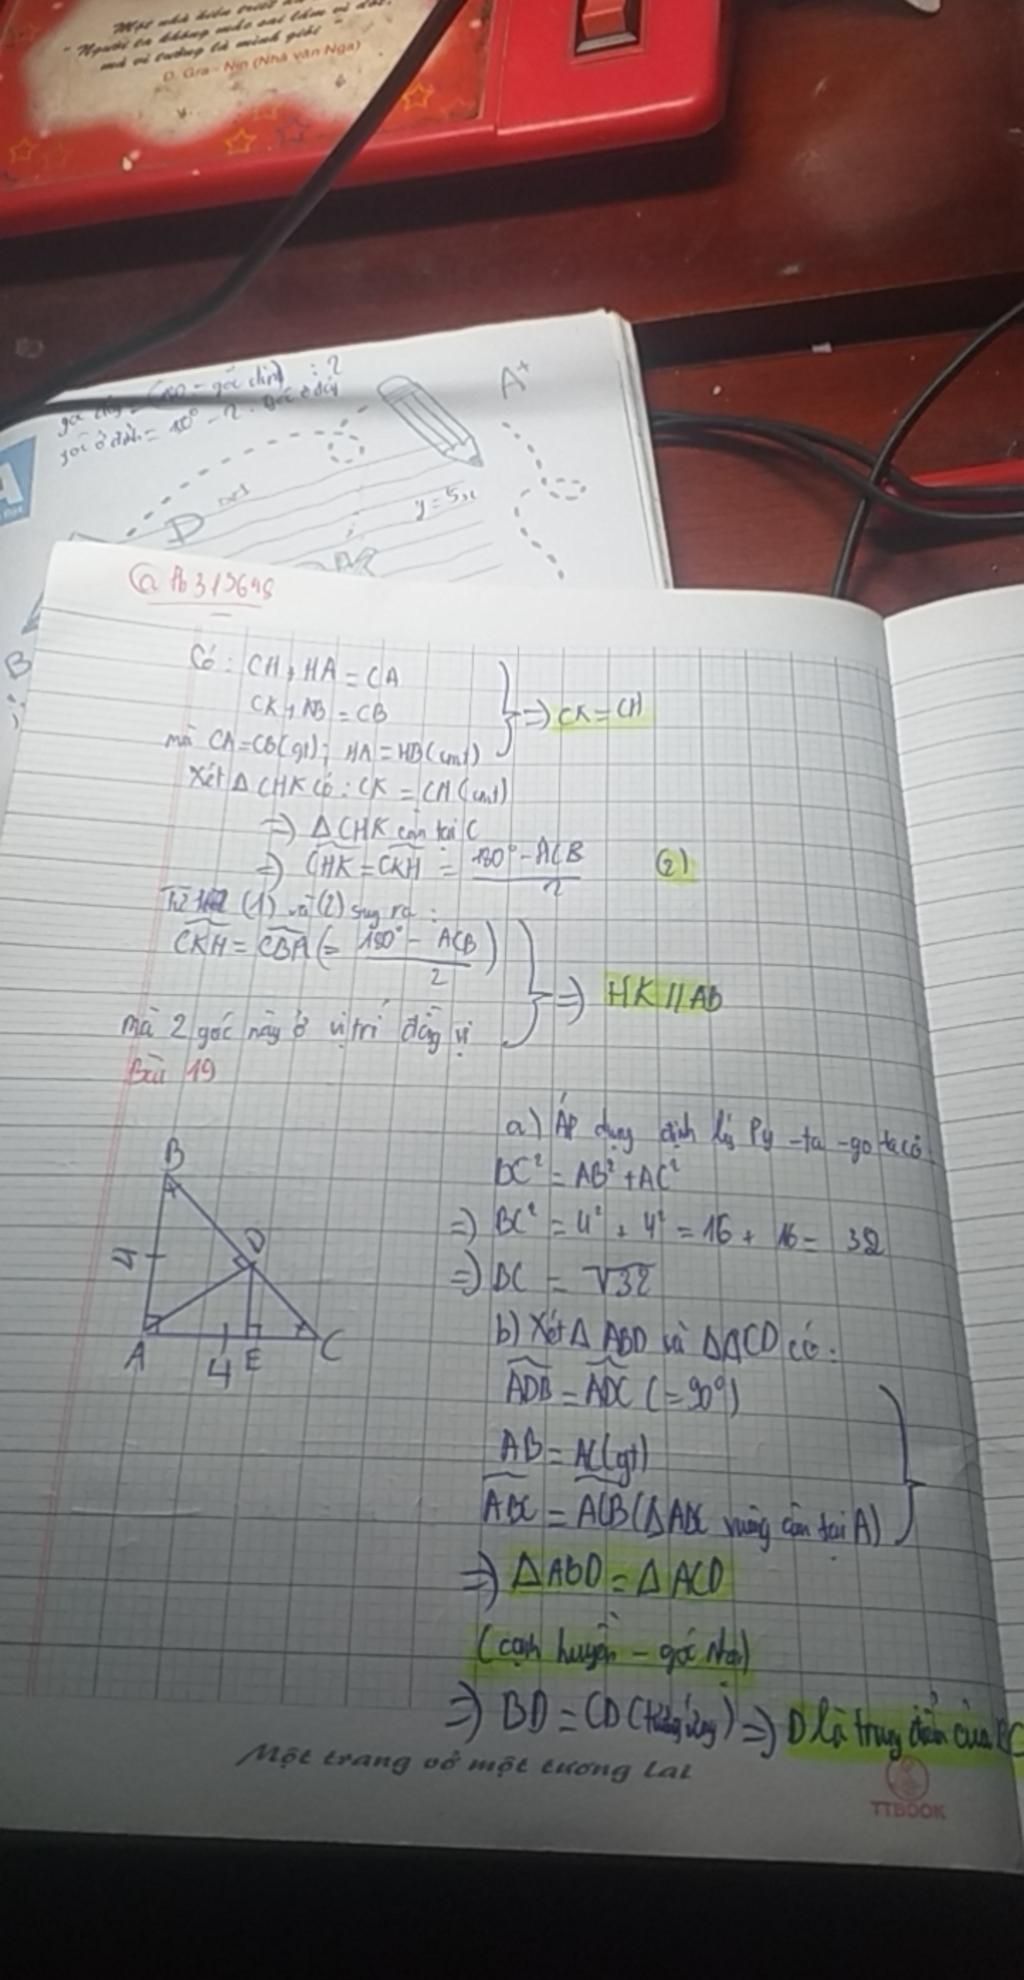 Một nhà hiền triết
"Người ta không mắc sai lầm vì dốt
mà vì tưởng là mình giỏi
D. Gra - Nin (Nhà văn Nga)
góc ở đỉnh = 180° - 2. góc ở đáy
A+
y = 5x
Có : CH + HA = CA
CK + KB = CB
mà CA = CB (gt) ; HA = HB (cmt)
⇒ CK = CH
Xét Δ CHK có : CK = CH (cmt)
⇒ Δ CHK cân tại C
⇒ CHK = CKH = 180° - ACB / 2 (2)
Từ (1) và (2) suy ra :
CKH = CBA (= 180° - ACB / 2)
mà 2 góc này ở vị trí đồng vị
⇒ HK // AB
Bài 19
B
D
A
4
E
C
a) Áp dụng định lý Py - ta - go ta có
BC² = AB² + AC²
⇒ BC² = 4² + 4² = 16 + 16 = 32
⇒ BC = √32
b) Xét Δ ABD và Δ ACD có :
ADB = ADC (= 90°)
AB = AC (gt)
ABC = ACB (Δ ABC vuông cân tại A)
⇒ Δ ABD = Δ ACD
(cạnh huyền - góc nhọn)
⇒ BD = CD (tương ứng) ⇒ D là trung điểm của BC
Một trang vở một tương lai
TTBOOK